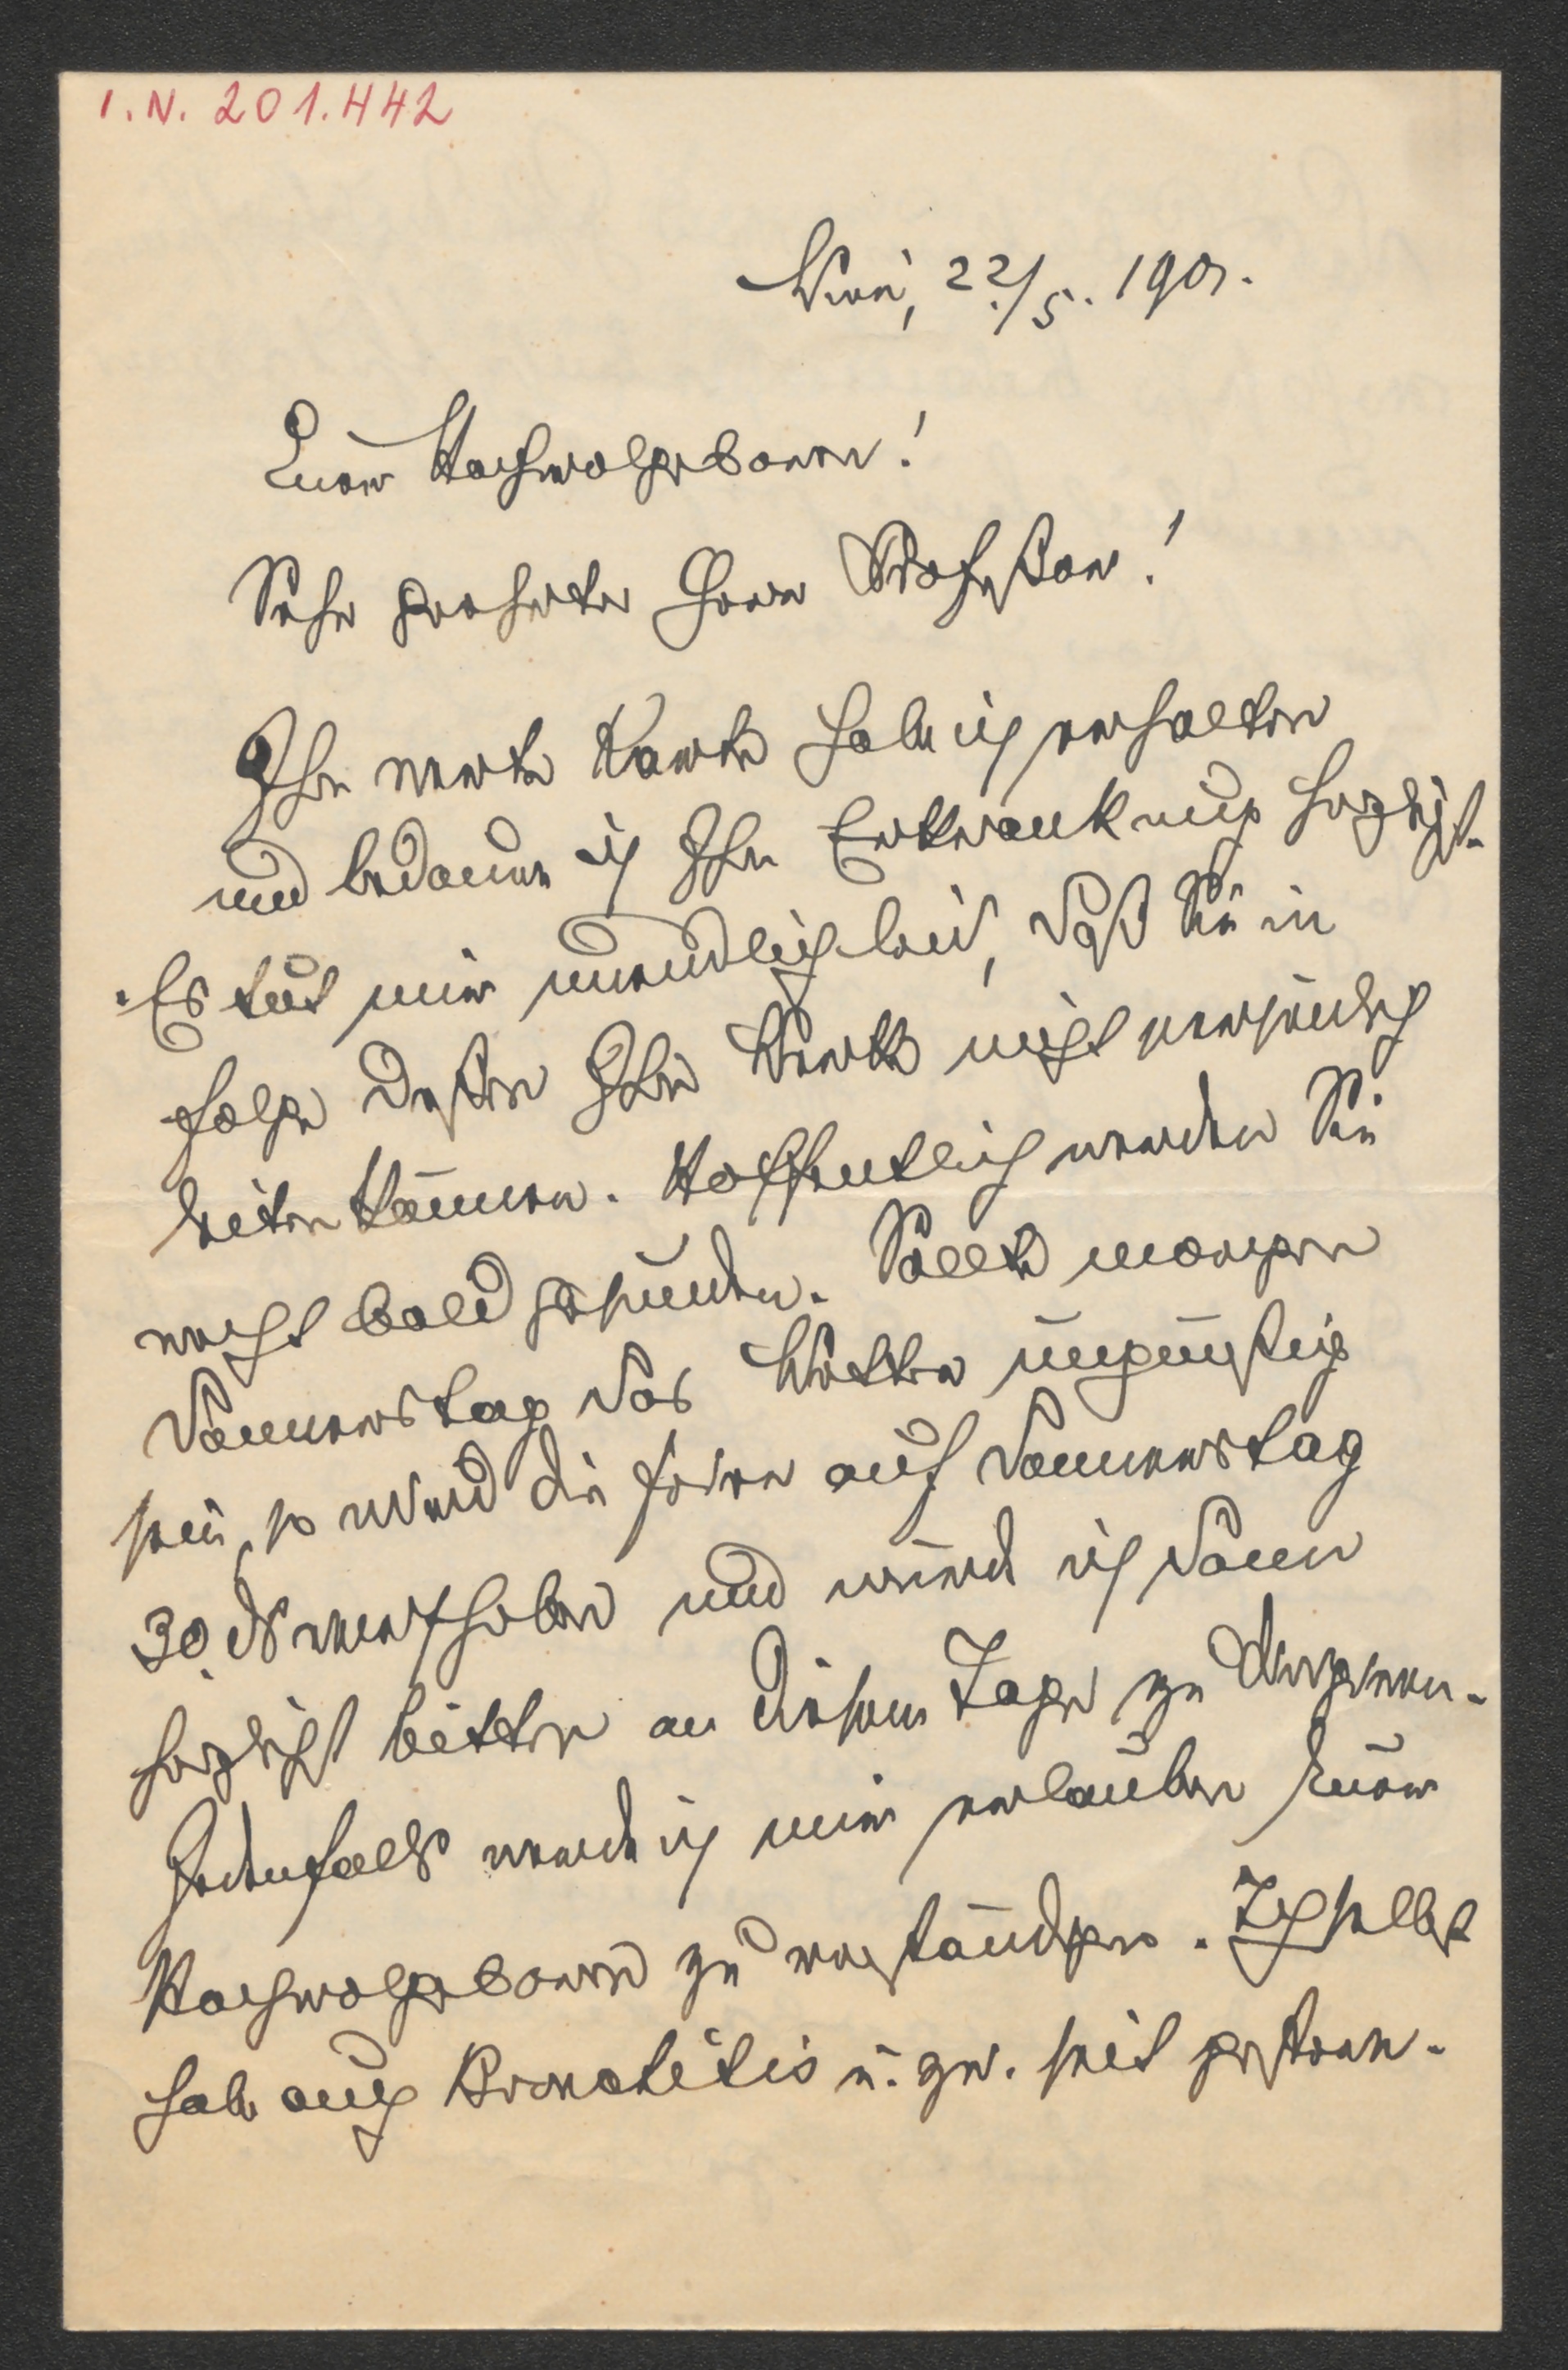 I.N. 201.442
Wien, 22./5. 1901.
Euer Hochwolgeboren!
Sehr geehrter Herr Professor!
Ihre werte Karte habe ich erhalten
und bedaure ich Ihre Erkrankung herzlichst.
Es tut mir unendlich leid, daß Sie in
folge dessen Ihre Werke nicht persönlich
leiten können. Hoffentlich werden Sie
recht bald gesunden. Sollte morgen
Donnerstag das Wetter ungünstig
sein, so wird die Feier auf Donnerstag
30. ds verschoben und würde ich dann
herzlichst bitten an diesem Tage zu
Jedenfalls werde ich mir erlauben Euer
Hochwolgeboren zu verständigen. Ich selbst
habe auch u. zw. seit gestern.